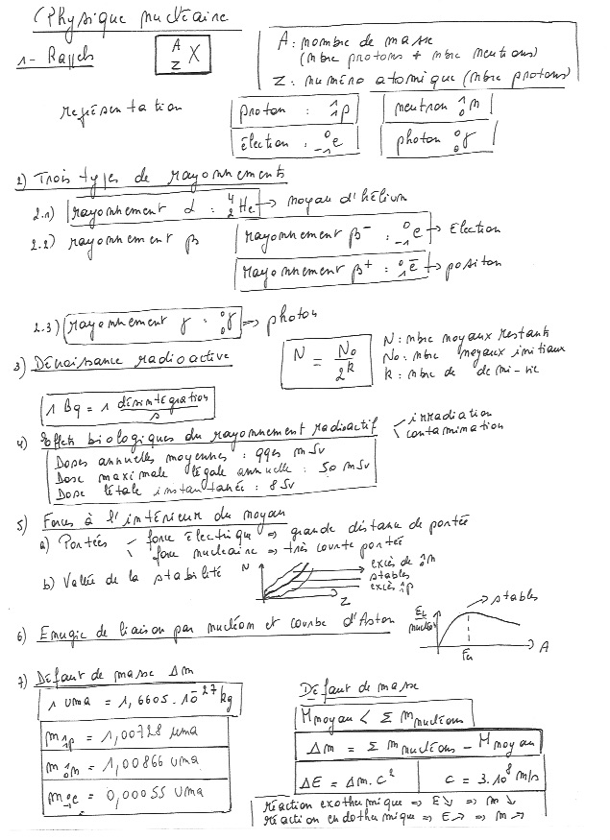 Physique nucléaire
1- Rappels
A
Z X
A: nombre de masse
(nbre protons + nbre neutrons)
Z: numéro atomique (nbre protons)
représentation
proton : ¹₁p
neutron ¹₀n
électron : ⁰₋₁e
photon ⁰₀γ
2) Trois types de rayonnements
2.1) rayonnement α : ⁴₂He → noyau d'hélium
2.2) rayonnement β
rayonnement β⁻ : ⁰₋₁e → électron
rayonnement β⁺ : ⁰₁e̅ → positon
2.3) rayonnement γ : ⁰₀γ → photon
3) Décroissance radioactive
N = No / 2^k
N: nbre noyaux restants
No: nbre noyaux initiaux
k: nbre de demi-vie
1 Bq = 1 désintégration / s
4) Effets biologiques du rayonnement radioactif
irradiation
contamination
Doses annuelles moyennes : qqes mSv
Dose maximale légale annuelle : 50 mSv
Dose létale instantanée : 8 Sv
5) Forces à l'intérieur du noyau
a) Portées
force électrique ⇒ grande distance de portée
force nucléaire ⇒ très courte portée
b) Vallée de la stabilité
N
Z
excès de ¹₀n
stables
excès ¹₁p
6) Energie de liaison par nucléon et courbe d'Aston
EL / nucléon
stables
Fe
A
7) Défaut de masse Δm
1 uma = 1,6605.10⁻²⁷ kg
m ¹₁p = 1,00728 uma
m ¹₀n = 1,00866 uma
m ⁰₋₁e = 0,00055 uma
Défaut de masse
Mnoyau < Σ mnucléons
Δm = Σ mnucléons - Mnoyau
ΔE = Δm.c²
c = 3.10⁸ m/s
réaction exothermique ⇒ E↘ ⇒ m↘
réaction endothermique ⇒ E↗ ⇒ m↗